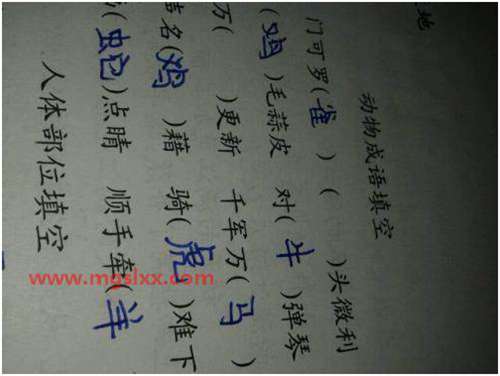 地
动物成语填空
门可罗(雀 ) ( )头微利
(鸡)毛蒜皮 对(牛 )弹琴
万( )更新 千军万(马 )
名(鸡)藉 骑(虎)难下
(蛇)点睛 顺手牵(羊
人体部位填空